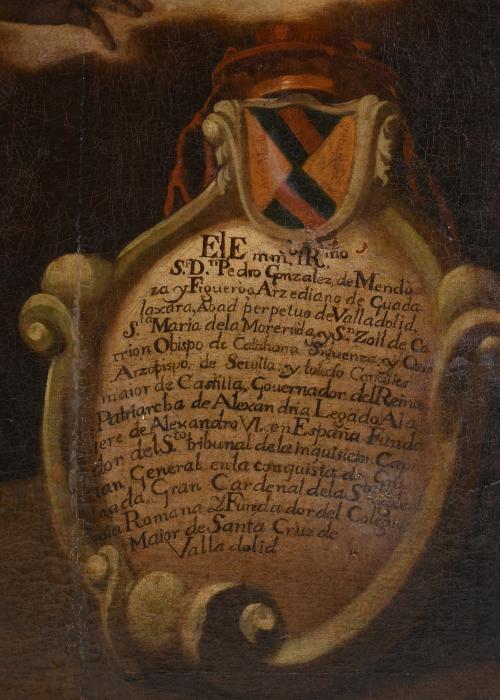 El Emm.º Rmo
S.r D.n Pedro Gonzalez, de Mendo
za y Figueroa, Arzediano de Guada
laxara, Abad perpetuo de Valladolid,
S.ta Maria dela Moreruela, y S.n Zoil de Ca
rrion Obispo de Calahorra Siguenza, y
Arzobispo, de Sevilla, y toledo Canciller
maior de Castilla, Governador del Reino
Patriarcha de Alexandria Legado Ala
tere de Alexandro VI. en España Funda
dor del S.to tribunal dela inquisicion Capi
tan General en la conquista de Gra
nada Gran Cardenal dela S.ta
sola Romana y Fundador del Colegio
Maior de Santa Cruz de
Valladolid